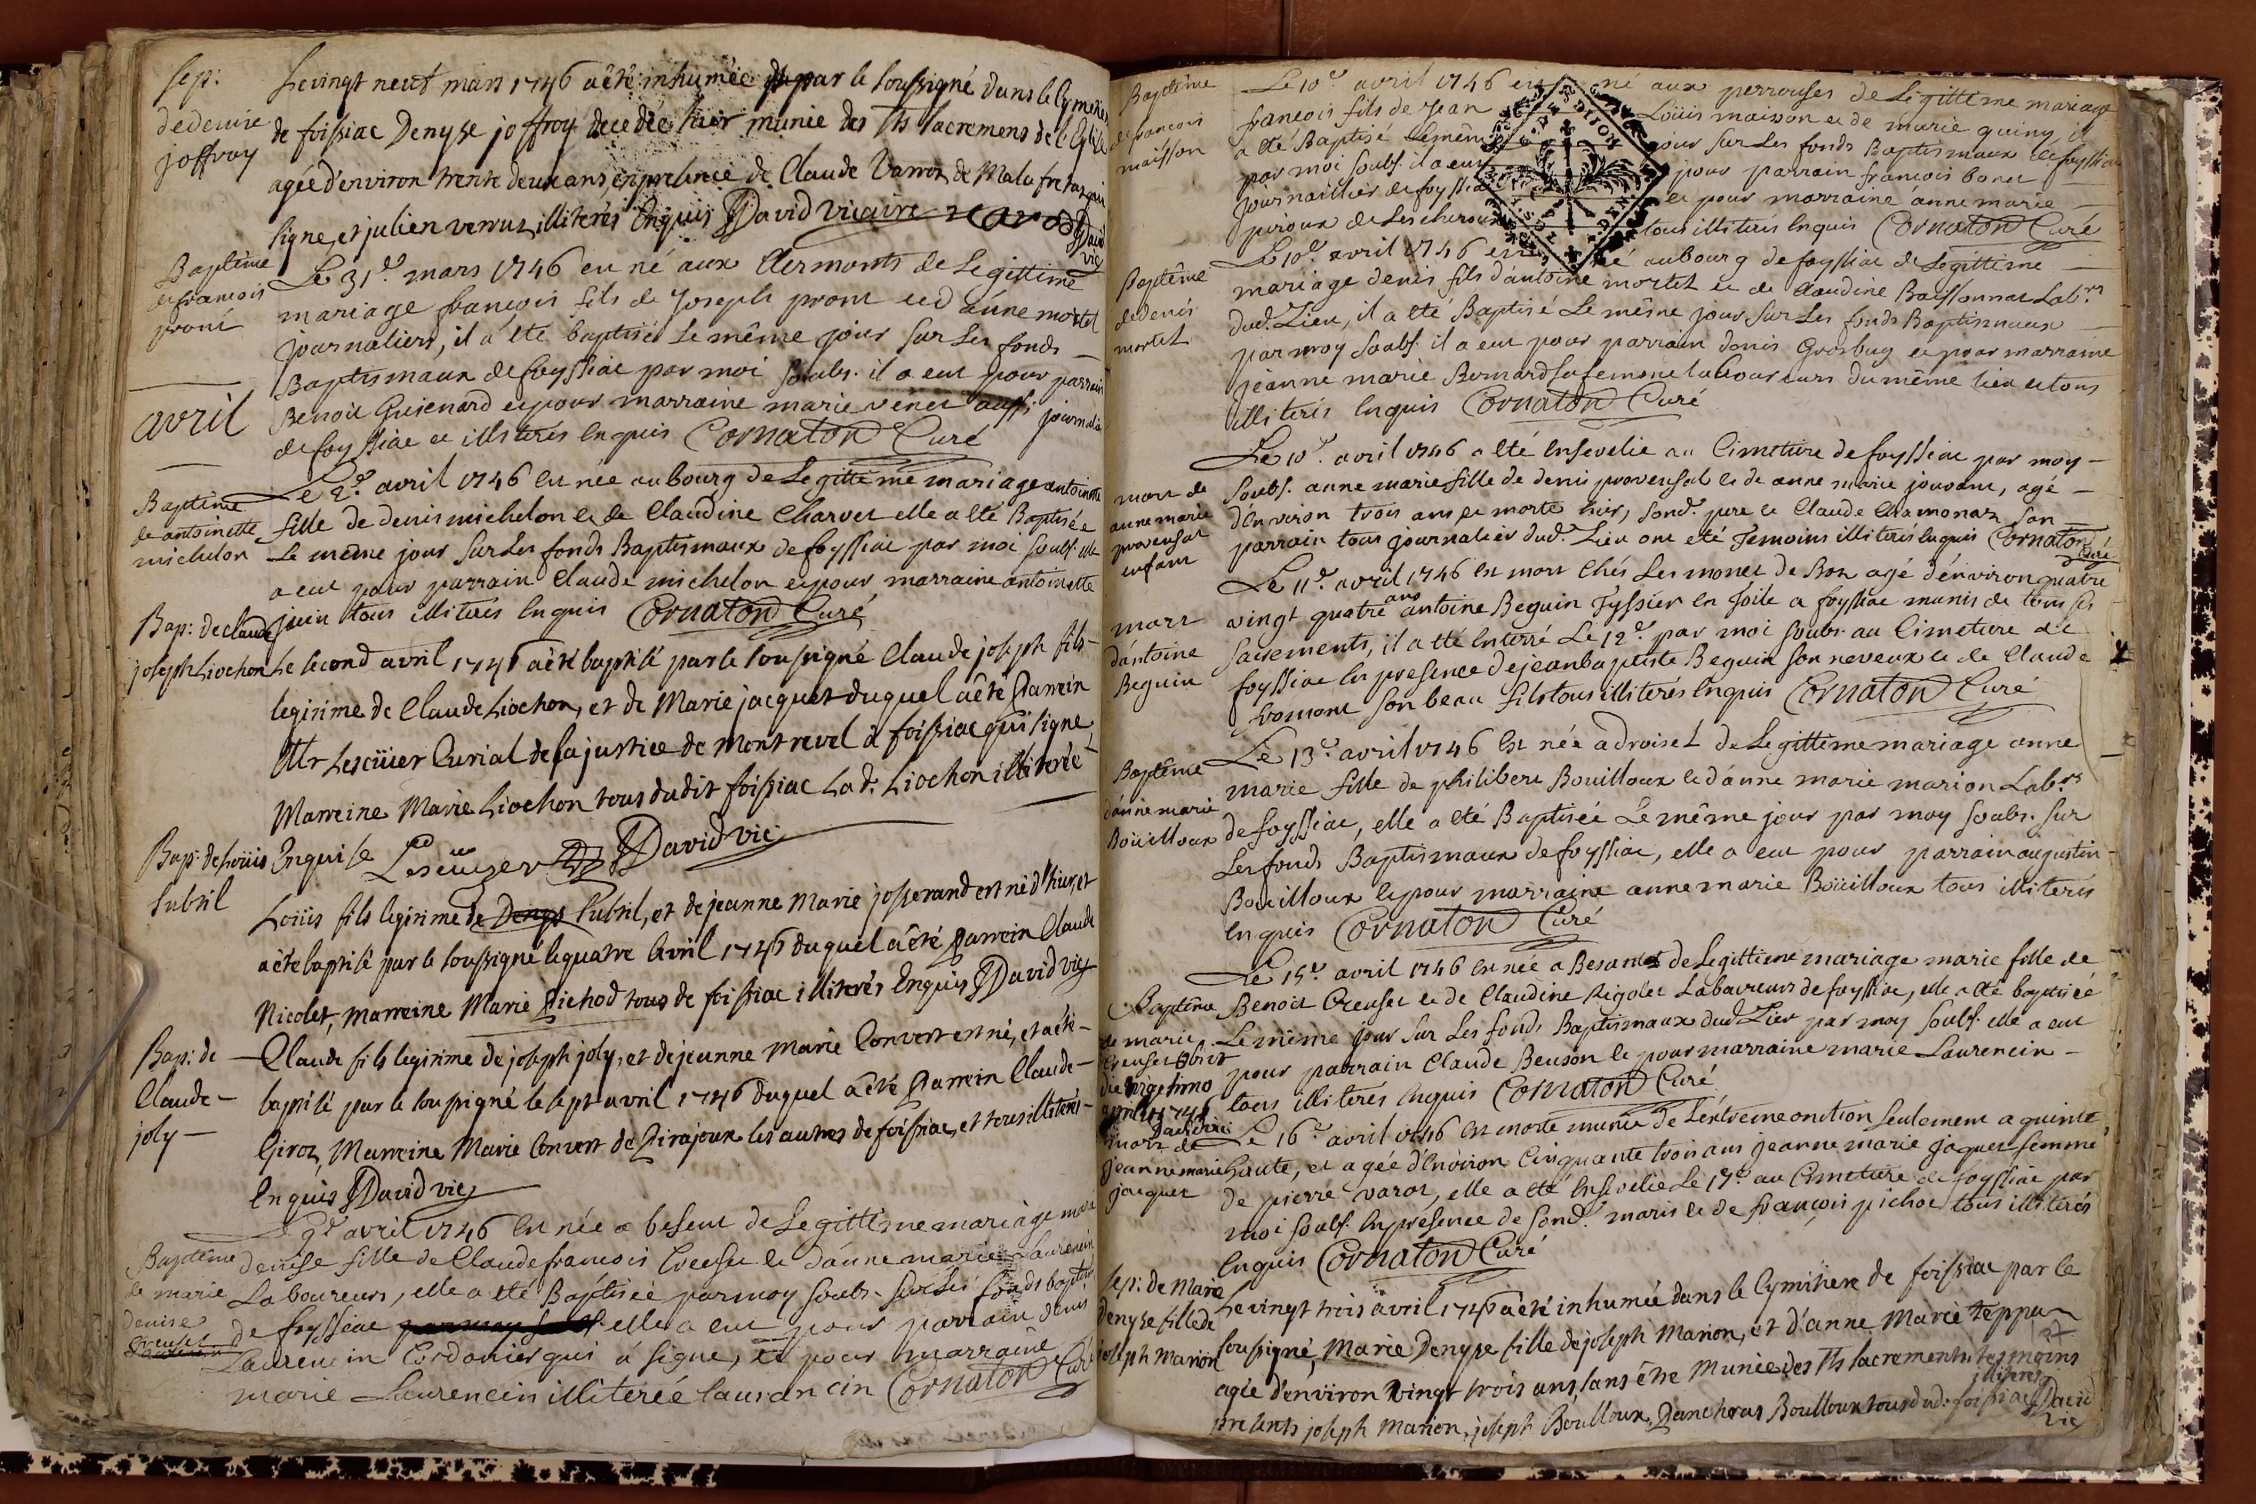 Sep:
de denise
joffroy
Le vingt neuf mars 1746 a été inhumée par le soussigné dans le Cymetiere
de foissiac Denyse joffroy decedée hier munie des Sts sacremens de l'Eglise
agée d'environ trente deux ans en presence de Claude Varroz de Malafretaz qui
signe, et julien verruz illiterés Enquis David vicaire
David
vic
Baptême
de francois
pront
Le 31e mars 1746 est né aux Clermonts de Legittime
mariage françois fils de Joseph pront et d'anne mortel
journaliers, il a été baptisé le même jour sur les fonds
Baptismaux de foyssiac par moi soubs. il a eut pour parrain
Benoit Guienard et pour marraine marie venet aussi journaliers
de foyssiac et illiterés Enquis Cornaton Curé
avril
Baptême
de antoinette
michelon
Le 2e avril 1746 est née au bourg de Legittime mariage antoinette
fille de denis michelon et de Claudine Charvet elle a été Baptisée
Le même jour sur Les fonds Baptismaux de foyssiac par moi soubs. elle
a eut pour parrain Claude michelon et pour marraine antoinette
juin tous illiterés Enquis Cornaton Curé
Bap: de claude
joseph Liochon
Le second avril 1746 a été baptisé par le soussigné Claude joseph fils
legitime de Claude Liochon, et de Marie jacquet duquel a été Parrein
Mr Lescüier Curial de la justice de Montrevel à foissiac qui signe
Marreine Marie Liochon tous dudit foissiac La d. Liochon illiterée
Enquise Lescüyer David vic
Bap: de Loüis
Subtil
Loüis fils legitime de Denys Subtil, et de jeanne Marie josserand est né d'hier, et
a été baptisé par le soussigné le quatre Avril 1746 duquel a été Parrein Claude
Nicolet, marreine Marie Pichod tous de foissiac illiterés Enquis David vic
Bap: de
Claude
joly
Claude fils legitime de joseph joly, et de jeanne Marie Convert est né, et a été
baptisé par le soussigné le sept avril 1746 duquel a été Parrein Claude
Giroz, Marreine Marie Convert de Pirajoux les autres de foissiac, et tous illiterés
Enquis David vic
Baptême
de marie
denise
creuset
Le 9e avril 1746 est née a besent de Legittime mariage marie
denise fille de Claude francois Creuset et d'anne marie Laurencin
Laboureurs, elle a été Baptisée par moy soubs. sur Les fonds baptismaux
de foyssiac par moy soubs. elle a eut pour parrain denis
Laurencin Cordonier qui a signé, et pour marraine
marie Laurencin illiterée laurancin Cornaton Curé
Baptême
de francois
maisson
Le 10e avril 1746 est né aux perrouses de Legittime mariage
francois fils de Jean Loüis maison et de marie guing, il
a été Baptisé le même jour sur Les fonds Baptismaux de foyssiac
par moi soubs. il a eut pour parrain françois bonet
journaillier de foyssiac et pour marraine anne marie
piroux de Lescheroux tous illiterés Enquis Cornaton Curé
Baptême
de denis
mortel
Le 10e avril 1746 est né au bourg de foyssiac de Legittime
mariage denis fils d'antoine mortel et de Claudine Boissonnat Labrs
dud. Lieu, il a été Baptisé Le même jour sur Les fonds Baptismaux
par moy soubs. il a eut pour parrain denis Grosbuy et pour marraine
jeanne marie Bernard sa femme laboureurs du même lieu et tous
illiterés Enquis Cornaton Curé
mort de
anne marie
provensal
enfant
Le 10e avril 1746 a été Ensevelie au Cimetiere de foyssiac par moy
soubs. anne marie fille de denis provensal et de anne marie jouvant, agé
d'environ trois ans et morte hier, sond. pere et Claude Chamonaz son
parrain tous journalier dud. Lieu ont été Temoins illiterés Enquis Cornaton
Curé
mort
d'antoine
Beguin
Le 11e avril 1746 est mort Chés Les monet de Box agé d'environ quatre
vingt quatre ans antoine Beguin Tyssier en Toile a foyssiac munis de tous ses
sacrements, il a été Enterré Le 12e par moi soubs. au Cimetiere de
foyssiac En presence de jean baptiste Beguin son neveux et de Claude
vomont son beau fils tous illiterés Enquis Cornaton Curé
Baptême
d'anne marie
Boüilloux
Le 13e avril 1746 est née a droiset de Legittime mariage anne
marie fille de philibert Bouilloux et d'anne marie marion Labrs
de foyssiac, elle a été Baptisée Le même jour par moy soubs. sur
Les fonds Baptismaux de foyssiac, elle a eut pour parrain augustin
Bouilloux et pour marraine anne marie Boüilloux tous illiterés
Enquis Cornaton Curé
Baptême
de marie
Creuset obiit
die vigesimo
aprilis 1746
Le 15e avril 1746 est née a Besant de Legittime mariage marie fille de
Benoit Creuset et de Claudine Rigolet Laboureurs de foyssiac, elle a été baptisée
Le même jour sur Les fonds Baptismaux dud. Lieu par moy soubs. elle a eut
pour parrain Claude Beuson et pour marraine marie Laurencin
tous illiterés Enquis Cornaton Curé
mort de
jeanne marie
jacquet
Le 16e avril 1746 est morte munie de L'extreme onction seulement a quinte
haute, et agée d'Environ Cinquante trois ans jeanne marie jaquet femme
de pierre varoz, elle a été Ensevelie Le 17e au Cimetiere de foyssiac par
moi soubs. En présence de sond. maris et de françois pichot tous illiterés
Enquis Cornaton Curé
Sep: de Marie
Denyse fille de
joseph Marion
Le vingt trois avril 1746 a été inhumée dans le Cymitiere de foissiac par le
soussigné, Marie Denyse fille de joseph Marion, et d'anne Marie teppa
agée d'environ vingt trois ans, sans être Munie des Sts sacrements, tesmoins
illiterés
presents joseph Marion, joseph Boulloux, Pancharas Boulloux tous dud. foissiac David
vic